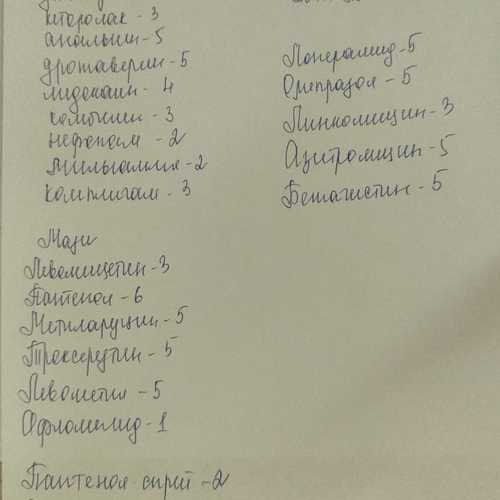 кеторолак - 3
анальгин - 5
дротаверин - 5
лидокаин - 4
нефопам - 2
Мильгамма - 2
комплигам - 3
Мази
Левомицетин - 3
Пантенол - 6
Метилурацин - 5
Троксерутин - 5
Левометил - 5
Офломелид - 1
Пантенол спрей - 2
Лоперамид - 5
Омепразол - 5
Линкомицин - 3
Азитромицин - 5
Бетагистин - 5